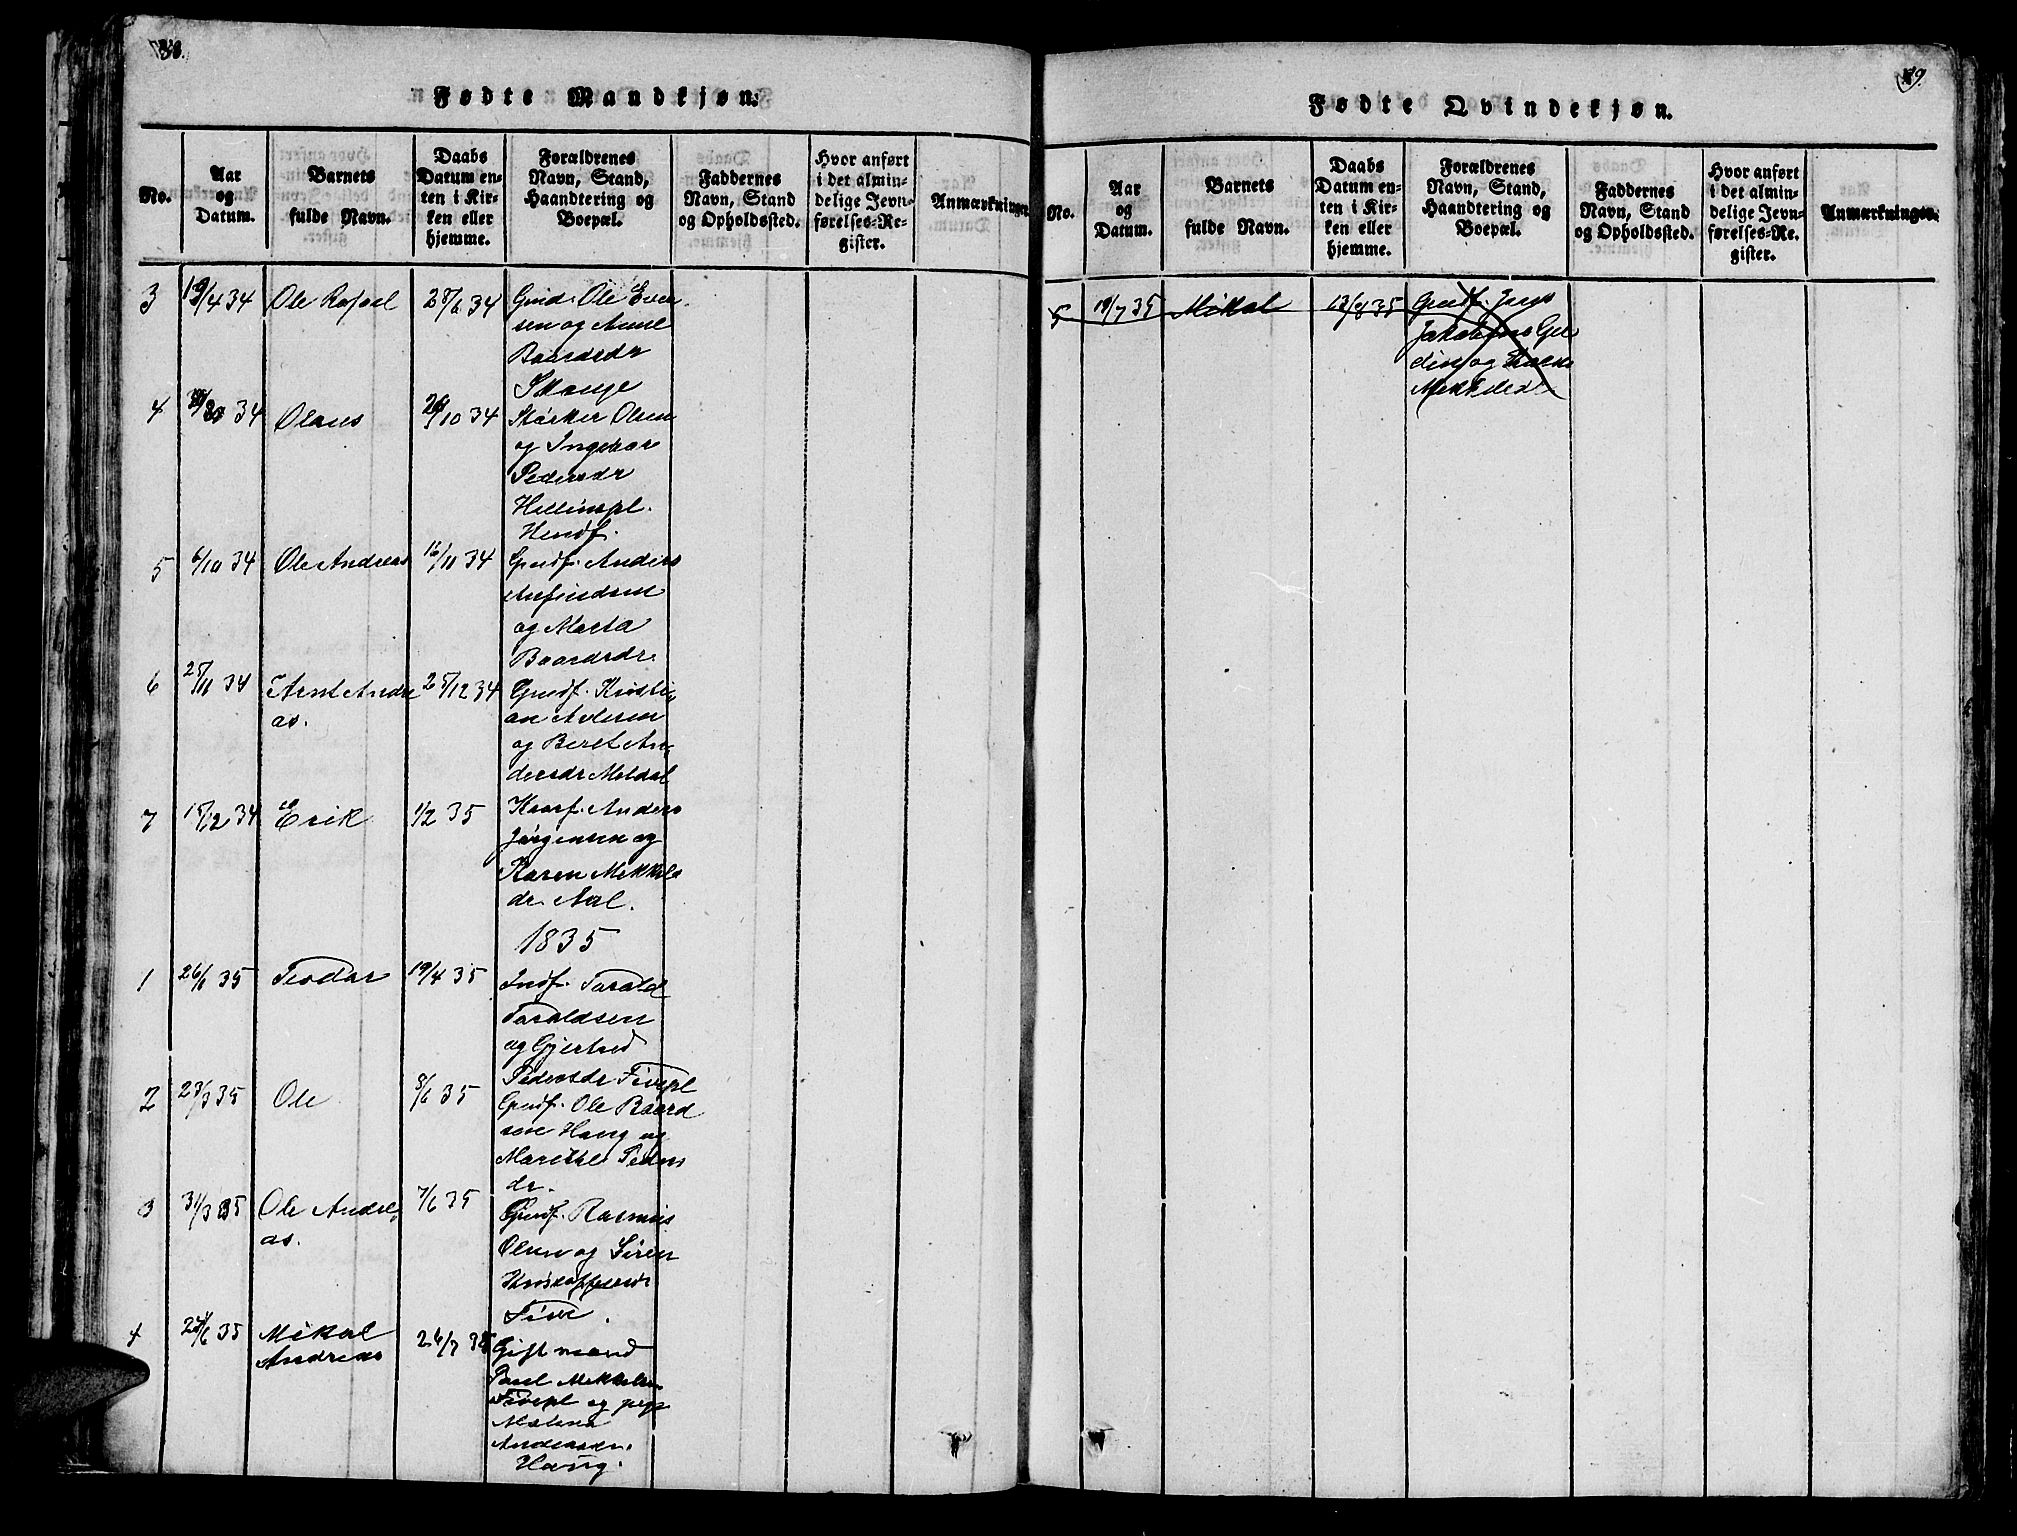 88.
Fødte Mandkjøn.
No.
Aar
og
Datum.
Barnets
fulde Navn.
Daabs
Datum en-
ten i Kir-
ken eller
hjemme.
Forældrenes
Navn, Stand,
Haandtering og
Boepæl.
Faddernes
Navn, Stand
og Opholdssted.
Hvor anført
i det almin-
delige Jevn-
førelses-Re-
gister.
Anmærkninger.
3 19/4 34 Ole Rafael 28/6 34 Grd. Ole Even
sen og Anne
Baardsdr
Skauge
4 34 Olaus 26/10 34 Størker Olsen
og Ingebor
Pedersdr
Hellimspl.
Hendf.
5 6/10 34 Ole Andreas 16/11 34 Grdf. Anders
Anfindsen
og Marta
Baardsdr.
6 25/11 34 Arnt Andre 25/12 34 Grdf. Kristi-
as. an Arlesen
og Beret An-
dersdr Meldal
7 15/12 34 Erik 1/2 35 Kaarf. Anders
Jørgensen og
Karen Mekkels
dr. Aal.
1835
1 26/1 35 Teodor 19/4 35 Indf. Tarald
Taraldsen
og Gjertrud
Pedersdr Fivepl
2 23/3 35 Ole 8/6 35 Grdf. Ole Baard
sen Haug og
Marethe Peders
dr.
3 31/3 35 Ole Andre- 7/6 35 Grdf. Rasmus
as. Olsen og Siren
Kristoffersdr
Five.
4 24/6 35 Mikal 26/7 35 Gift mand
Andreas Paul Mekkelsen
Fivepl og pige
Malena
Andersdr.
Haug.
89.
Fødte Qvindekjøn.
No.
Aar
og
Datum.
Barnets
fulde Navn.
Daabs
Datum en-
ten i Kir-
ken eller
hjemme.
Forældrenes
Navn, Stand,
Haandtering og
Boepæl.
Faddernes
Navn, Stand
og Opholdssted.
Hvor anført
i det almin-
delige Jevn-
førelses-Re-
gister.
Anmærkninger.
5 19/7 35 Mikal 13/8 35 Grdf. Jens
Jakobsen Gjel
din og
Mekkelsdr